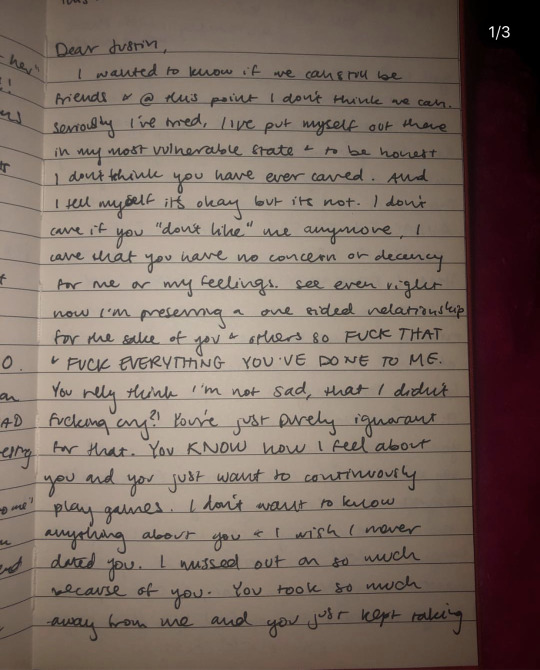 1/3
Dear Justin,
I wanted to know if we can still be
friends & @ this point I don't think we can.
seriously I've tried, I've put myself out there
in my most vulnerable state & to be honest
I don't think you have ever cared. And
I tell myself its okay but its not. I don't
care if you "don't like" me anymore, I
care that you have no concern or decency
for me or my feelings. see even right
now I'm preserving a one sided relationship
for the sake of you & others so FUCK THAT
& FUCK EVERYTHING YOU'VE DONE TO ME.
You rely think I'm not sad, that I didn't
fucking cry?! You're just purely ignorant
for that. You KNOW how I feel about
you and you just want to continuously
play games. I don't want to know
anything about you & I wish I never
dated you. I missed out on so much
because of you. You took so much
away from me and you just kept taking